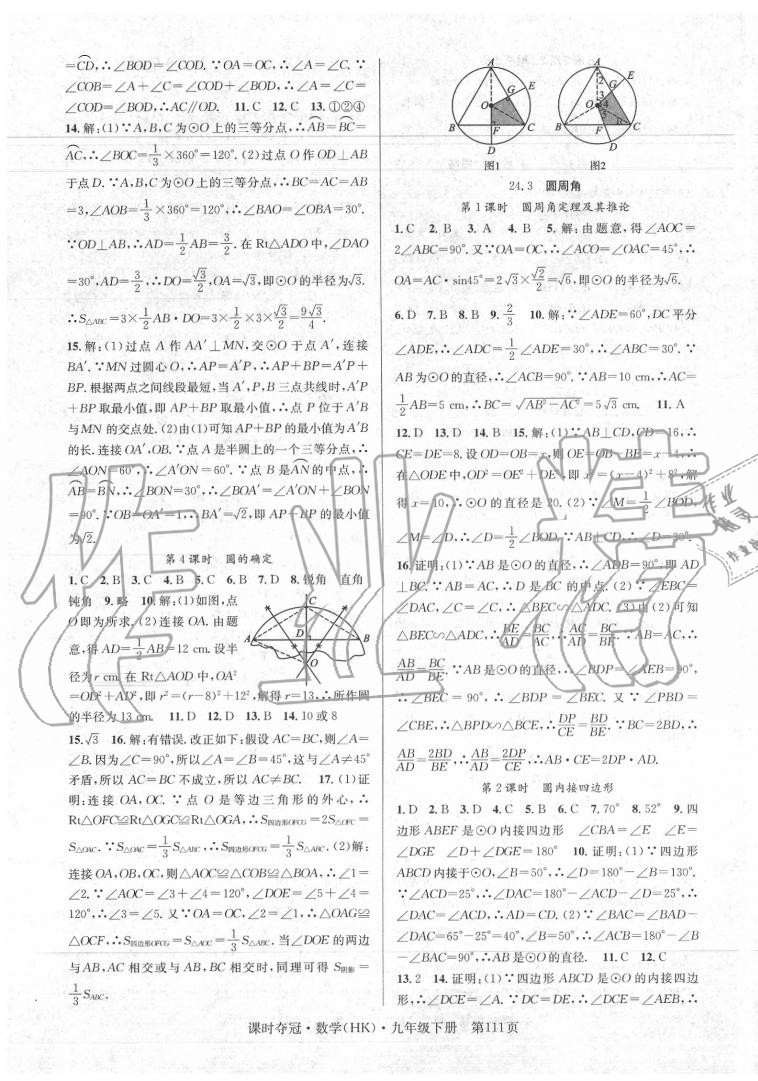 =CD,∴∠BOD=∠COD. ∵OA=OC,∴∠A=∠C. ∵
∠COB=∠A+∠C=∠COD+∠BOD,∴∠A=∠C=
∠COD=∠BOD,∴AC∥OD. 11. C 12. C 13. ①②④
14. 解:(1)∵A,B,C为⊙O上的三等分点,∴AB=BC=
AC,∴∠BOC=1/3×360°=120°. (2)过点O作OD⊥AB
于点D. ∵A,B,C为⊙O上的三等分点,∴BC=AC=AB
=3,∠AOB=1/3×360°=120°,∴∠BAO=∠OBA=30°.
∵OD⊥AB,∴AD=1/2AB=3/2. 在Rt△ADO中,∠DAO
=30°,AD=3/2,∴DO=√3/2,OA=√3,即⊙O的半径为√3.
∴S△ABC=3×1/2AB·DO=3×1/2×3×√3/2=9√3/4.
15. 解:(1)过点A作AA′⊥MN,交⊙O于点A′,连接
BA′. ∵MN过圆心O,∴AP=A′P,∴AP+BP=A′P+
BP. 根据两点之间线段最短,当A′,P,B三点共线时,A′P
+BP取最小值,即AP+BP取最小值,∴点P位于A′B
与MN的交点处. (2)由(1)可知AP+BP的最小值为A′B
的长. 连接OA′,OB. ∵点A是半圆上的一个三等分点,∴
∠AON=60°,∴∠A′ON=60°. ∵点B是AN的中点,∴
AB=BN,∴∠BON=30°,∴∠BOA′=∠A′ON+∠BON
=90°. ∵OB=OA′=1,∴BA′=√2,即AP+BP的最小值
为√2.
第4课时 圆的确定
1. C 2. B 3. C 4. B 5. C 6. B 7. D 8. 锐角 直角
钝角 9. 略 10. 解:(1)如图,点
O即为所求. (2)连接OA. 由题
意,得AD=1/2AB=12 cm. 设半
径为r cm. 在Rt△AOD中,OA²
=OD²+AD²,即r²=(r-8)²+12²,解得r=13,∴所作圆
的半径为13 cm. 11. D 12. D 13. B 14. 10或8
15. √3 16. 解:有错误. 改正如下:假设AC=BC,则∠A=
∠B. 因为∠C=90°,所以∠A=∠B=45°,这与∠A≠45°
矛盾,所以AC=BC不成立,所以AC≠BC. 17. (1)证
明:连接OA,OC. ∵点O是等边三角形的外心,∴
Rt△OFC≌Rt△OGC≌Rt△OGA,∴S四边形OFCG=2S△OFC=
S△OAC. ∵S△OAC=1/3S△ABC,∴S四边形OFCG=1/3S△ABC. (2)解:
连接OA,OB,OC,则△AOC≌△COB≌△BOA,∴∠1=
∠2. ∵∠AOC=∠3+∠4=120°,∠DOE=∠5+∠4=
120°,∴∠3=∠5. 又∵OA=OC,∠2=∠1,∴△OAG≌
△OCF,∴S四边形OFCG=S△AOC=1/3S△ABC. 当∠DOE的两边
与AB,AC相交或与AB,BC相交时,同理可得S阴影=
1/3S△ABC.
A D B O
A G E O B F C D
图1
A 2 G E 3 O 4 5 1 B F C D
图2
24.3 圆周角
第1课时 圆周角定理及其推论
1. C 2. B 3. A 4. B 5. 解:由题意,得∠AOC=
2∠ABC=90°. 又∵OA=OC,∴∠ACO=∠OAC=45°,∴
OA=AC·sin45°=2√3×√2/2=√6,即⊙O的半径为√6.
6. D 7. B 8. B 9. 2/3 10. 解:∵∠ADE=60°,DC平分
∠ADE,∴∠ADC=1/2∠ADE=30°,∴∠ABC=30°. ∵
AB为⊙O的直径,∴∠ACB=90°. ∵AB=10 cm,∴AC=
1/2AB=5 cm,∴BC=√AB²-AC²=5√3 cm. 11. A
12. D 13. D 14. B 15. 解:(1)∵AB⊥CD,CD=16,∴
CE=DE=8. 设OD=OB=x,则OE=x-4,∴
在△ODE中,OD²=OE²+DE²,即x²=(x-4)²+8²,解
得x=10,∴⊙O的直径是20. (2)∵∠M=1/2∠BOD,
∠M=∠D,∴∠D=1/2∠BOD. ∵AB⊥CD,∴∠D=30°.
16. 证明:(1)∵AB是⊙O的直径,∴∠ADB=90°,即AD
⊥BC. ∵AB=AC,∴D是BC的中点. (2)∵∠EBC=
∠DAC,∠C=∠C,∴△BEC∽△ADC. (3)由(2)可知
△BEC∽△ADC,∴BE/AD=BC/AC,∴AC/AD=BC/BE. ∵AB=AC,∴
AB/AD=BC/BE. ∵AB是⊙O的直径,∴∠BDP=∠AEB=90°,
∴∠BEC=90°,∴∠BDP=∠BEC. 又∵∠PBD=
∠CBE,∴△BPD∽△BCE,∴DP/CE=BD/BE. ∵BC=2BD,∴
AB/AD=2BD/BE,∴AB/AD=2DP/CE,∴AB·CE=2DP·AD.
第2课时 圆内接四边形
1. D 2. B 3. D 4. C 5. B 6. C 7. 70° 8. 52° 9. 四
边形ABEF是⊙O内接四边形 ∠CBA=∠E ∠E=
∠DGE ∠D+∠DGE=180° 10. 证明:(1)∵四边形
ABCD内接于⊙O,∠B=50°,∴∠D=180°-∠B=130°.
∵∠ACD=25°,∴∠DAC=180°-∠ACD-∠D=25°,∴
∠DAC=∠ACD,∴AD=CD. (2)∵∠BAC=∠BAD-
∠DAC=65°-25°=40°,∠B=50°,∴∠ACB=180°-∠B-
∠BAC=90°,∴AB是⊙O的直径. 11. C 12. C
13. 2 14. 证明:(1)∵四边形ABCD是⊙O的内接四边
形,∴∠DCE=∠A. ∵DC=DE,∴∠DCE=∠AEB,∴
课时夺冠·数学(HK)·九年级下册 第111页